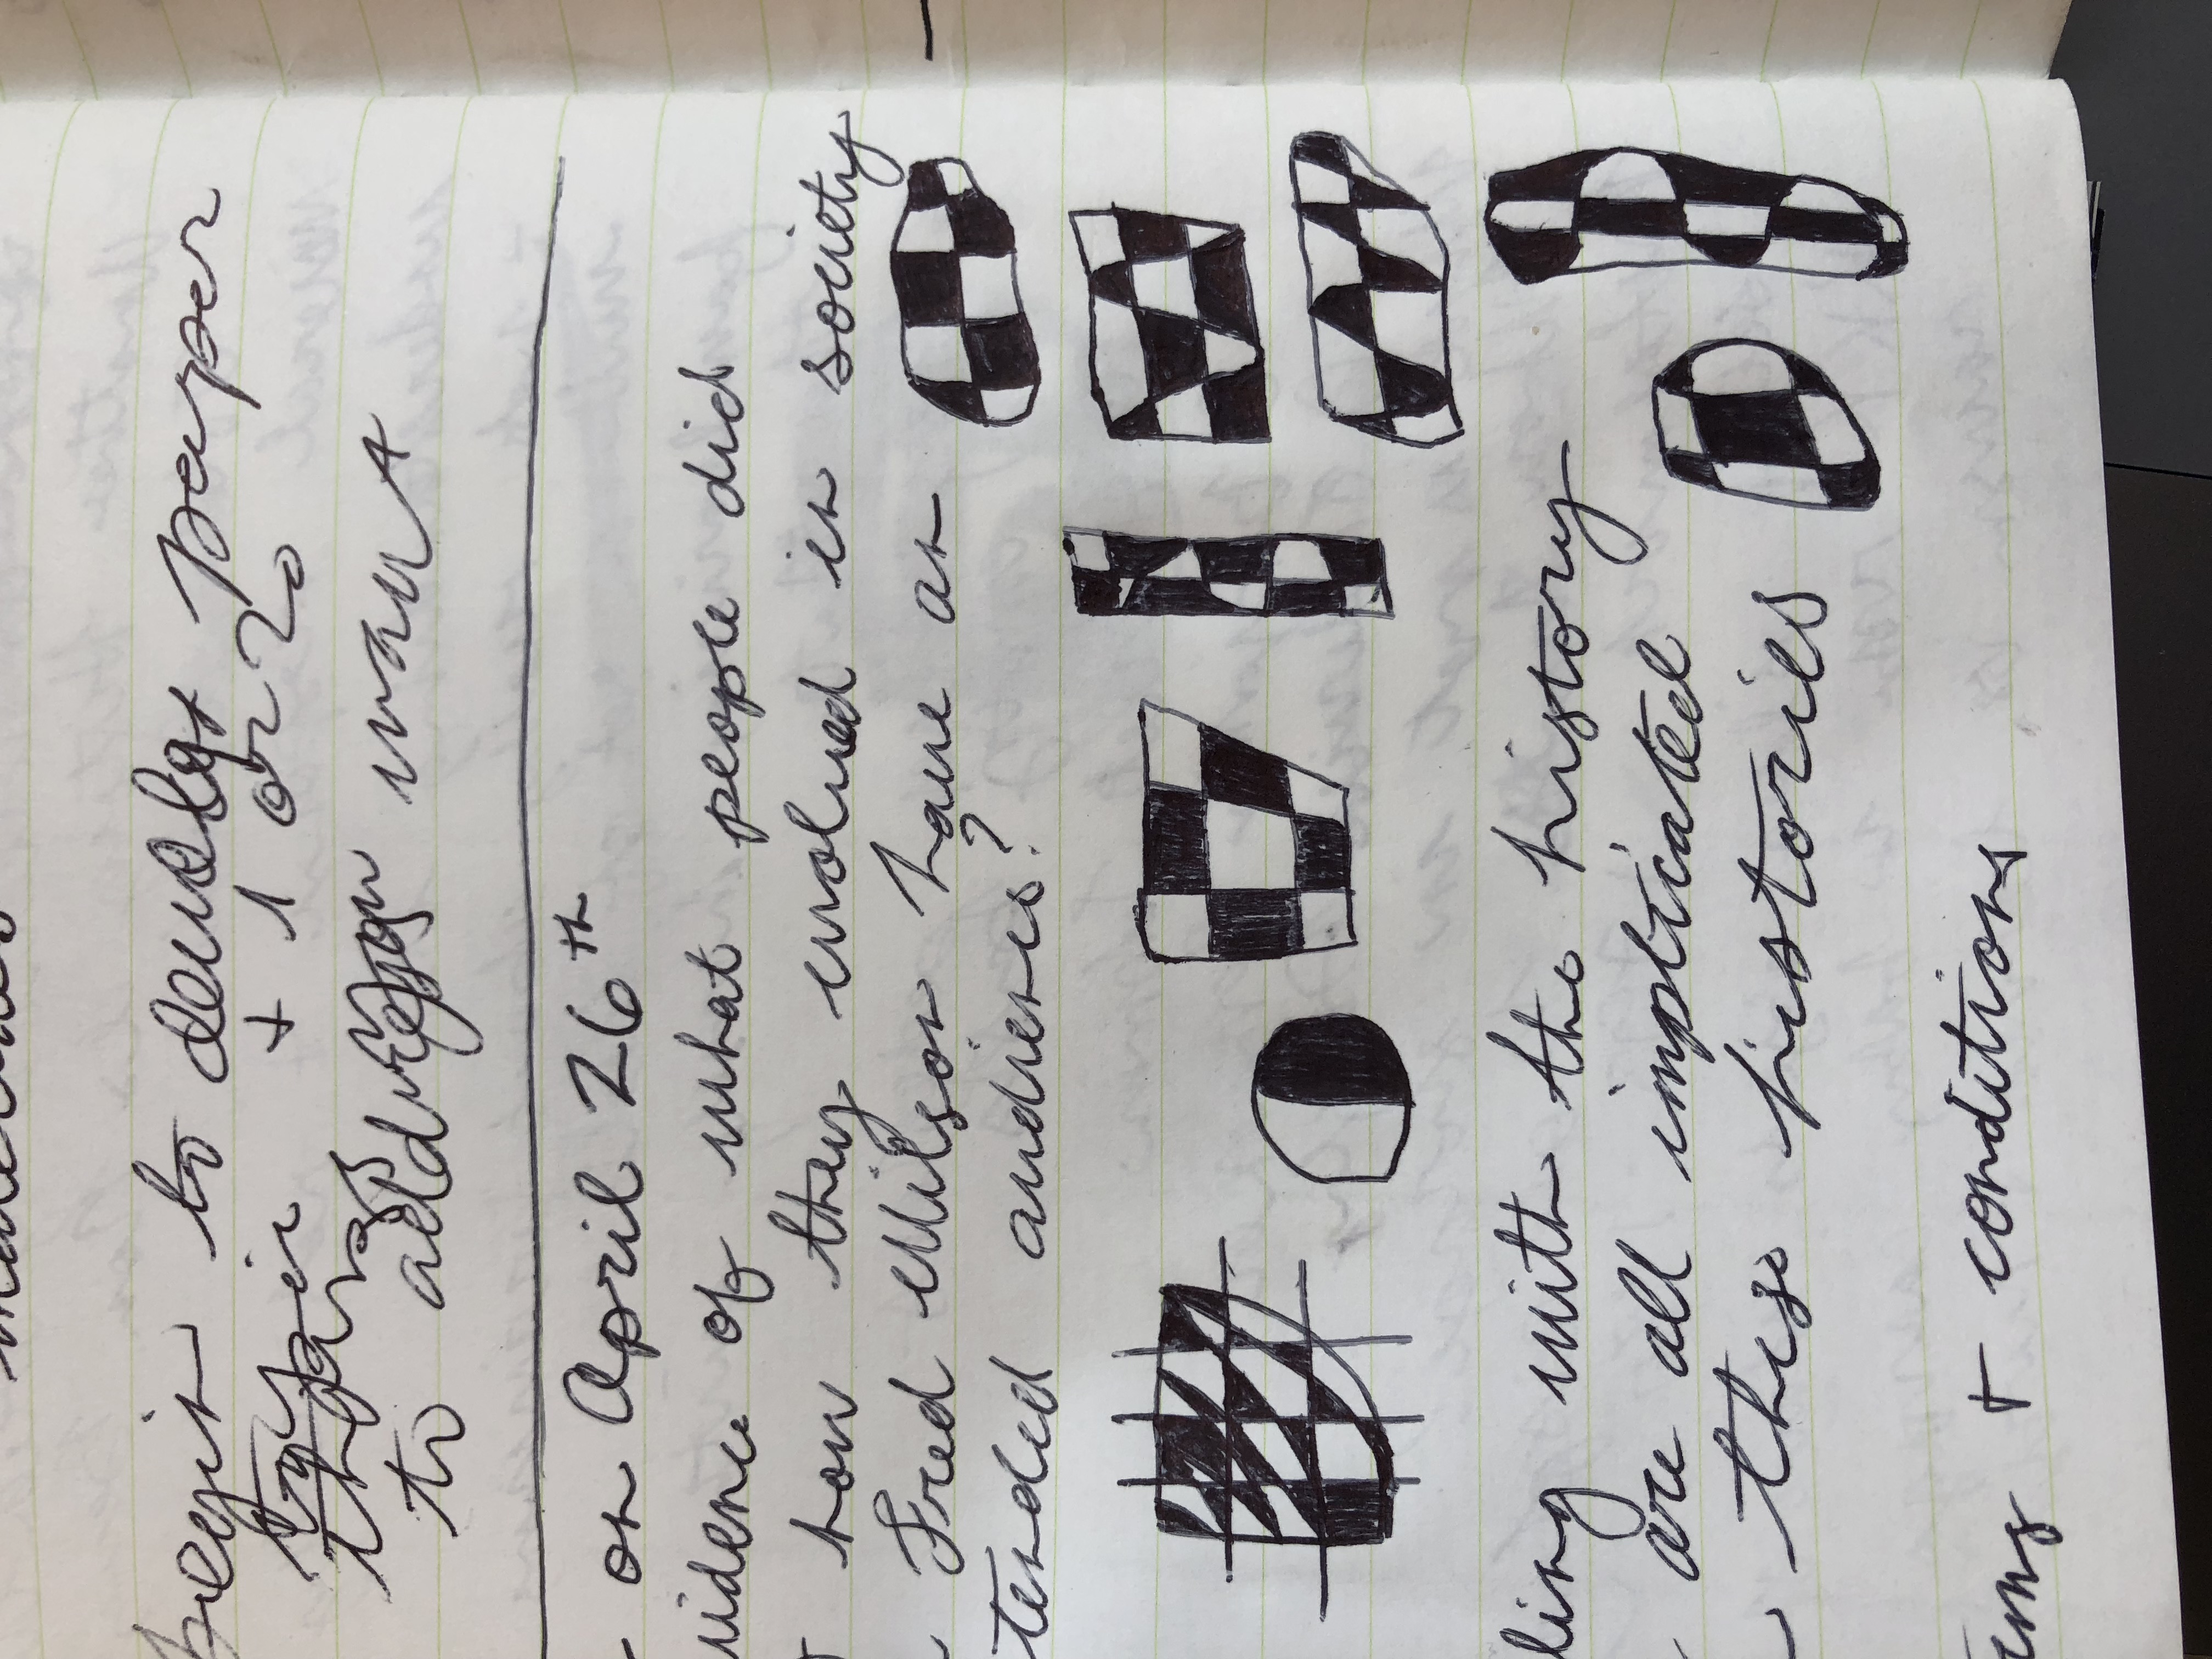 materials
begin to develop paper
topic + 1 or 20
things you want
to address
on April 26th
vidence of what people did
how they evolved in society
Fred Wilson have an
tended audience?
ling with the history
are all implicated
these histories
+ conditions